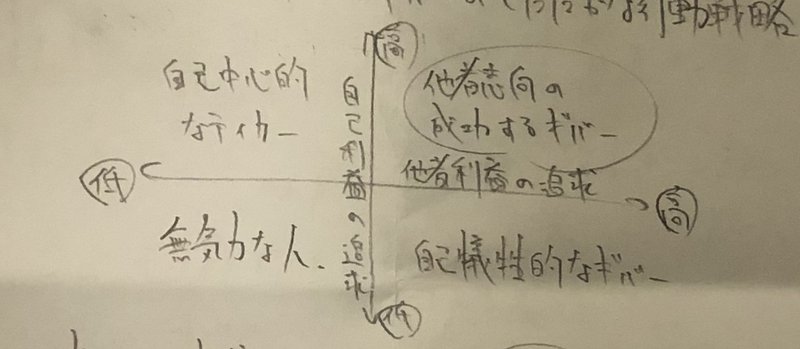 行動戦略
高
自己中心的
なテイカー
他者志向の
成功するギバー
自己利益の追求
他者利益の追求
低
高
無気力な人、
自己犠牲的なギバー
低